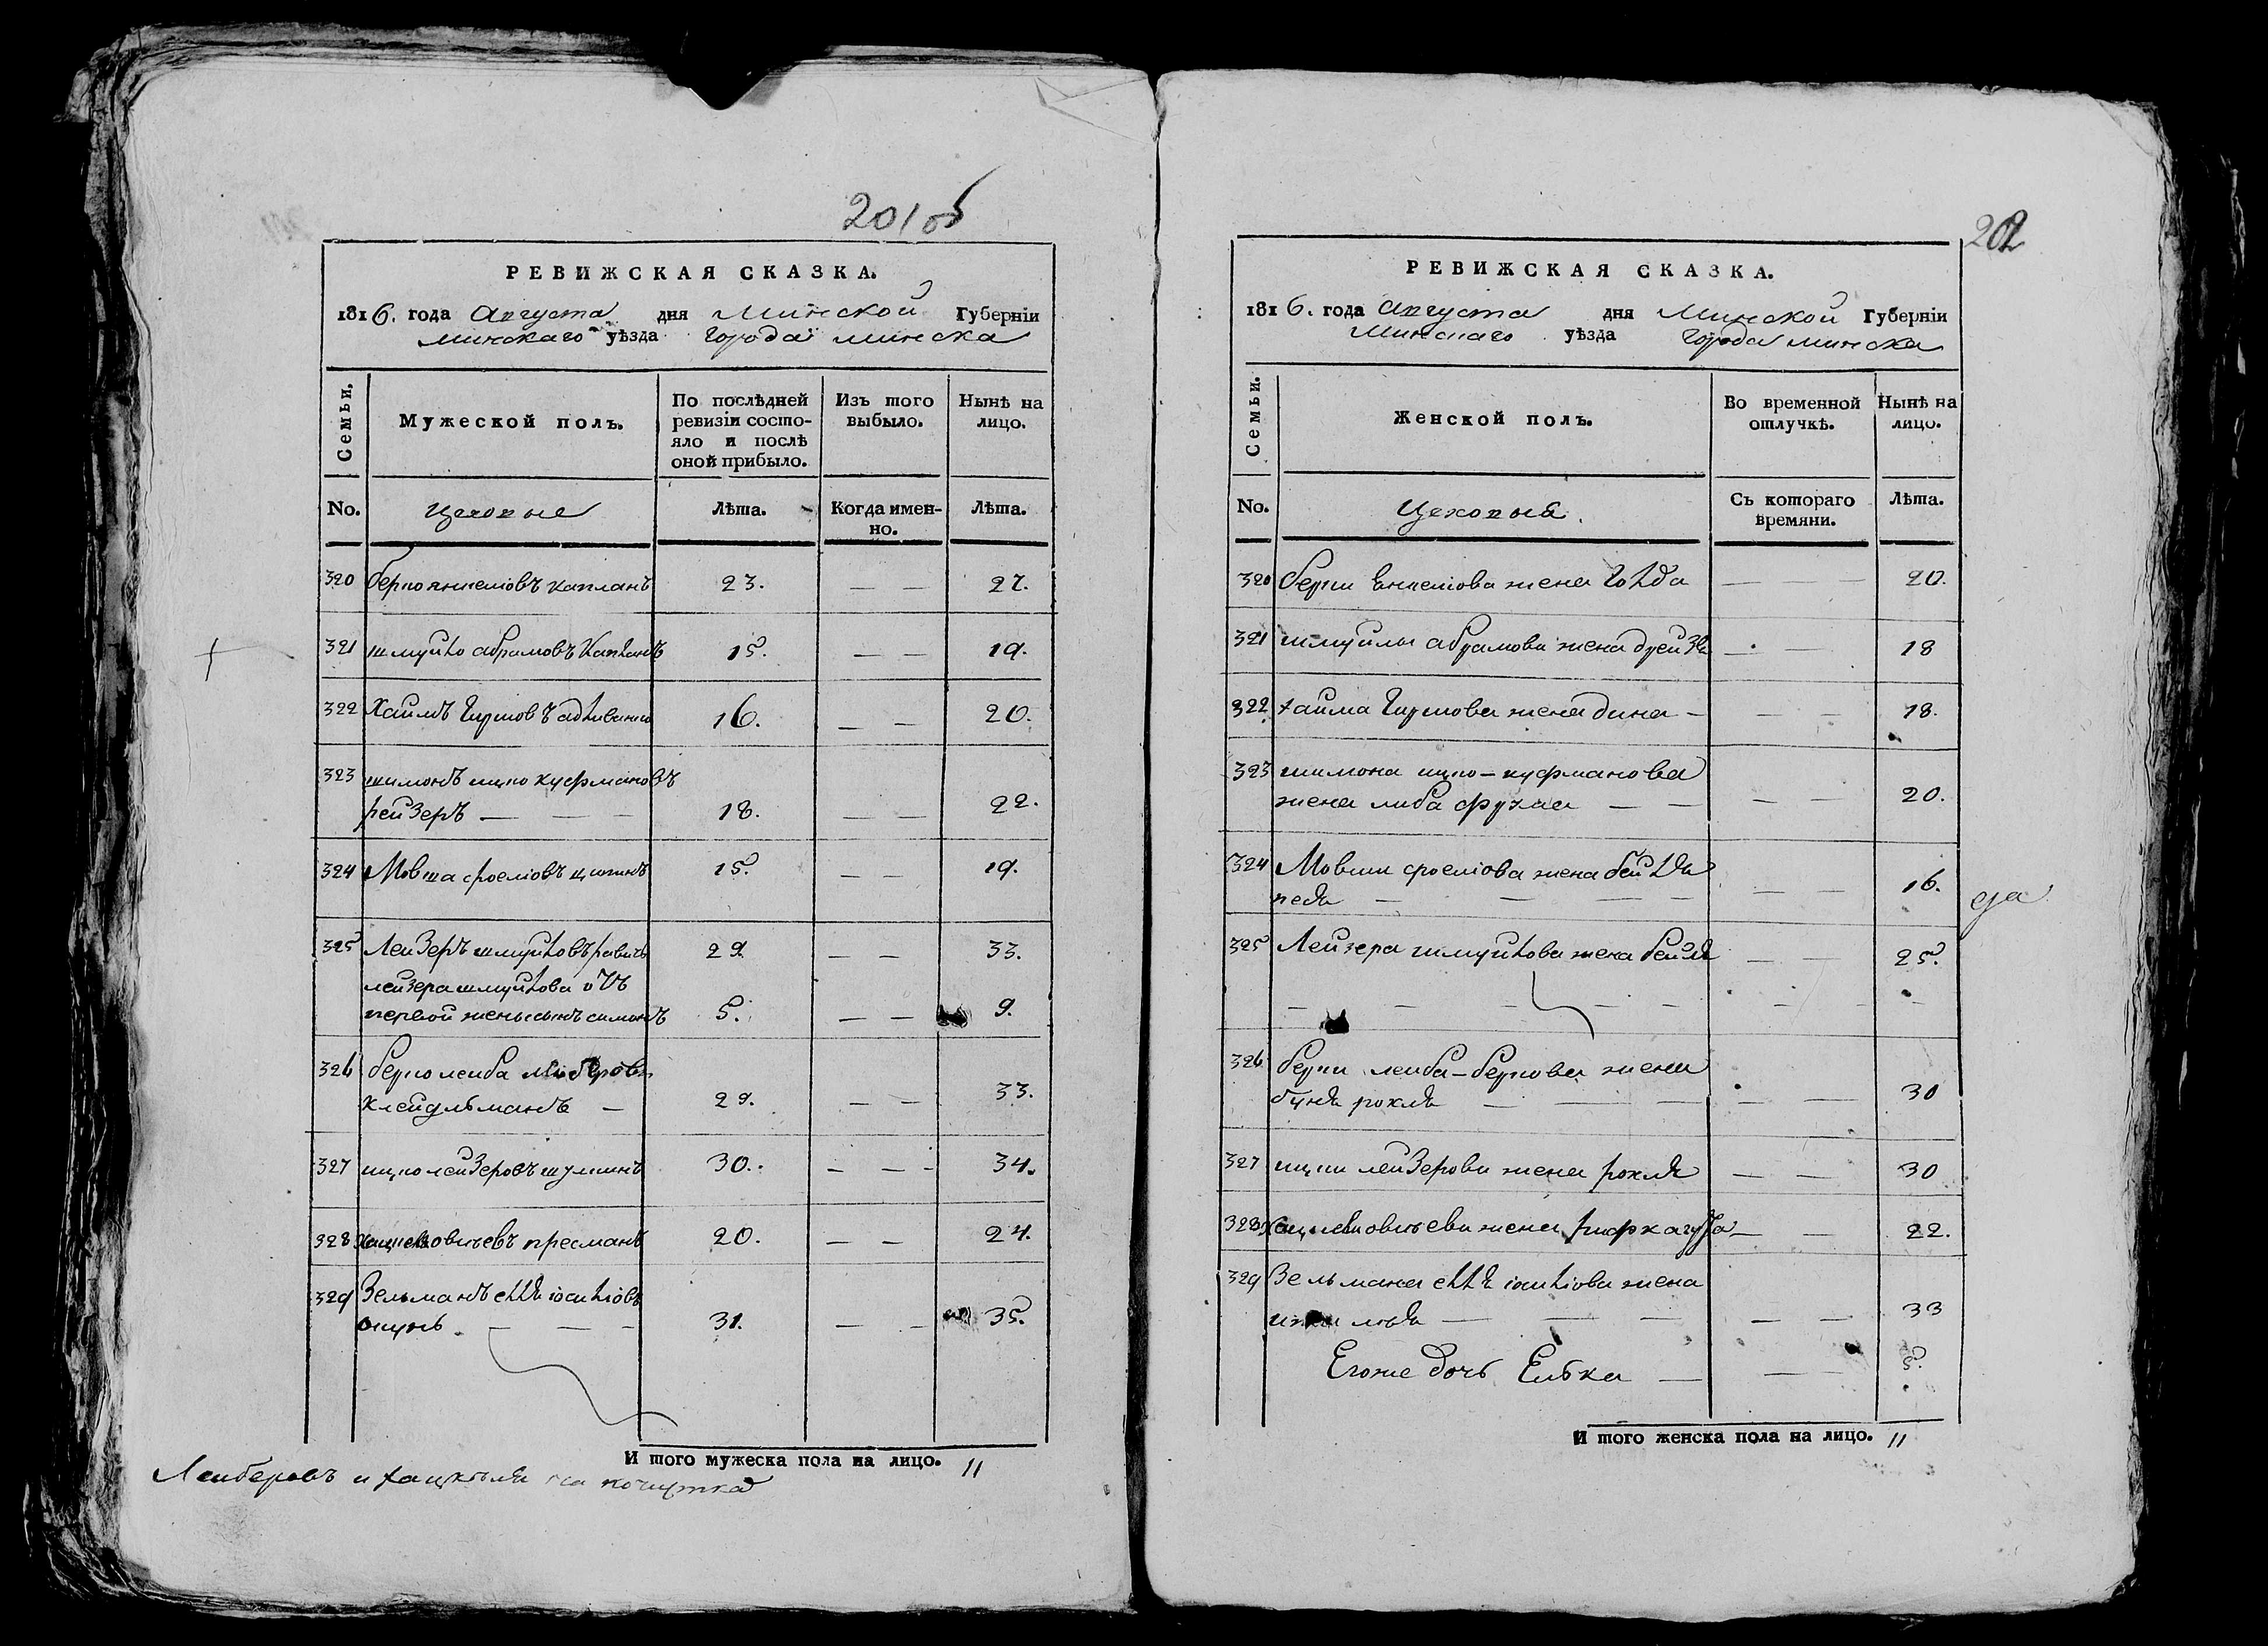 201 об
РЕВИЖСКАЯ СКАЗКА.
1816. года Августа дня Минской Губерніи
минскаго уѣзда города минска
Семьи.
Мужеской полъ.
По послѣдней ревизіи состояло и послѣ оной прибыло.
Изъ того выбыло.
Нынѣ на лицо.
No. Цеховые Лѣта. Когда именно. Лѣта.
320 берко янкелiовъ капланъ 23. — — 27.
321 шмуйло абрамовъ Капланъ 15. — — 19.
322 Хаимъ Гиршовъ 16. — — 20.
323 шимонъ ицко куфмановъ
рейзеръ — — — 18. — — 22.
324 Мовша фроелiовъ 15. — — 19.
325 Лейзеръ шмуйловъ 29. — — 33.
лейзера шмуйлова отъ
первой жены сынъ симонъ 5. — — 9.
326 берко лейба
клейдльманъ — 29. — — 33.
327 ицко лейзеровъ шульманъ 30. — — 34.
328 пресманъ 20. — — 24.
329 Зельманъ
окунь — — — 31. — — 35.
И того мужеска пола на лицо. 11
Лейберовъ и
202
РЕВИЖСКАЯ СКАЗКА.
1816. года Августа дня Минской Губерніи
Минскаго уѣзда города минска
Семьи.
Женской полъ.
Во временной отлучкѣ.
Нынѣ на лицо.
No. Цеховыя Съ котораго времяни. Лѣта.
320 берки Янкелiова жена Голда — — 20.
321 шмуйлы абрамова жена дрейзя — — 18
322 хаима Гиршова жена дина — — — 18.
323 шимона ицко-куфманова
жена либа фрумa — — — — 20.
324 Мовши фроелiова жена бейля
песя — — — — — 16.
325 Лейзера шмуйлова жена бейля — — 25.
326 берки лейба-беркова жена
буня рохля — — — — — 30
327 ицки лейзерова жена рохля — — 30
328 жена — — 22.
329 Зельмана жена
— — — — — 33
Егоже дочь Елька — — — 5.
И того женска пола на лицо. 11